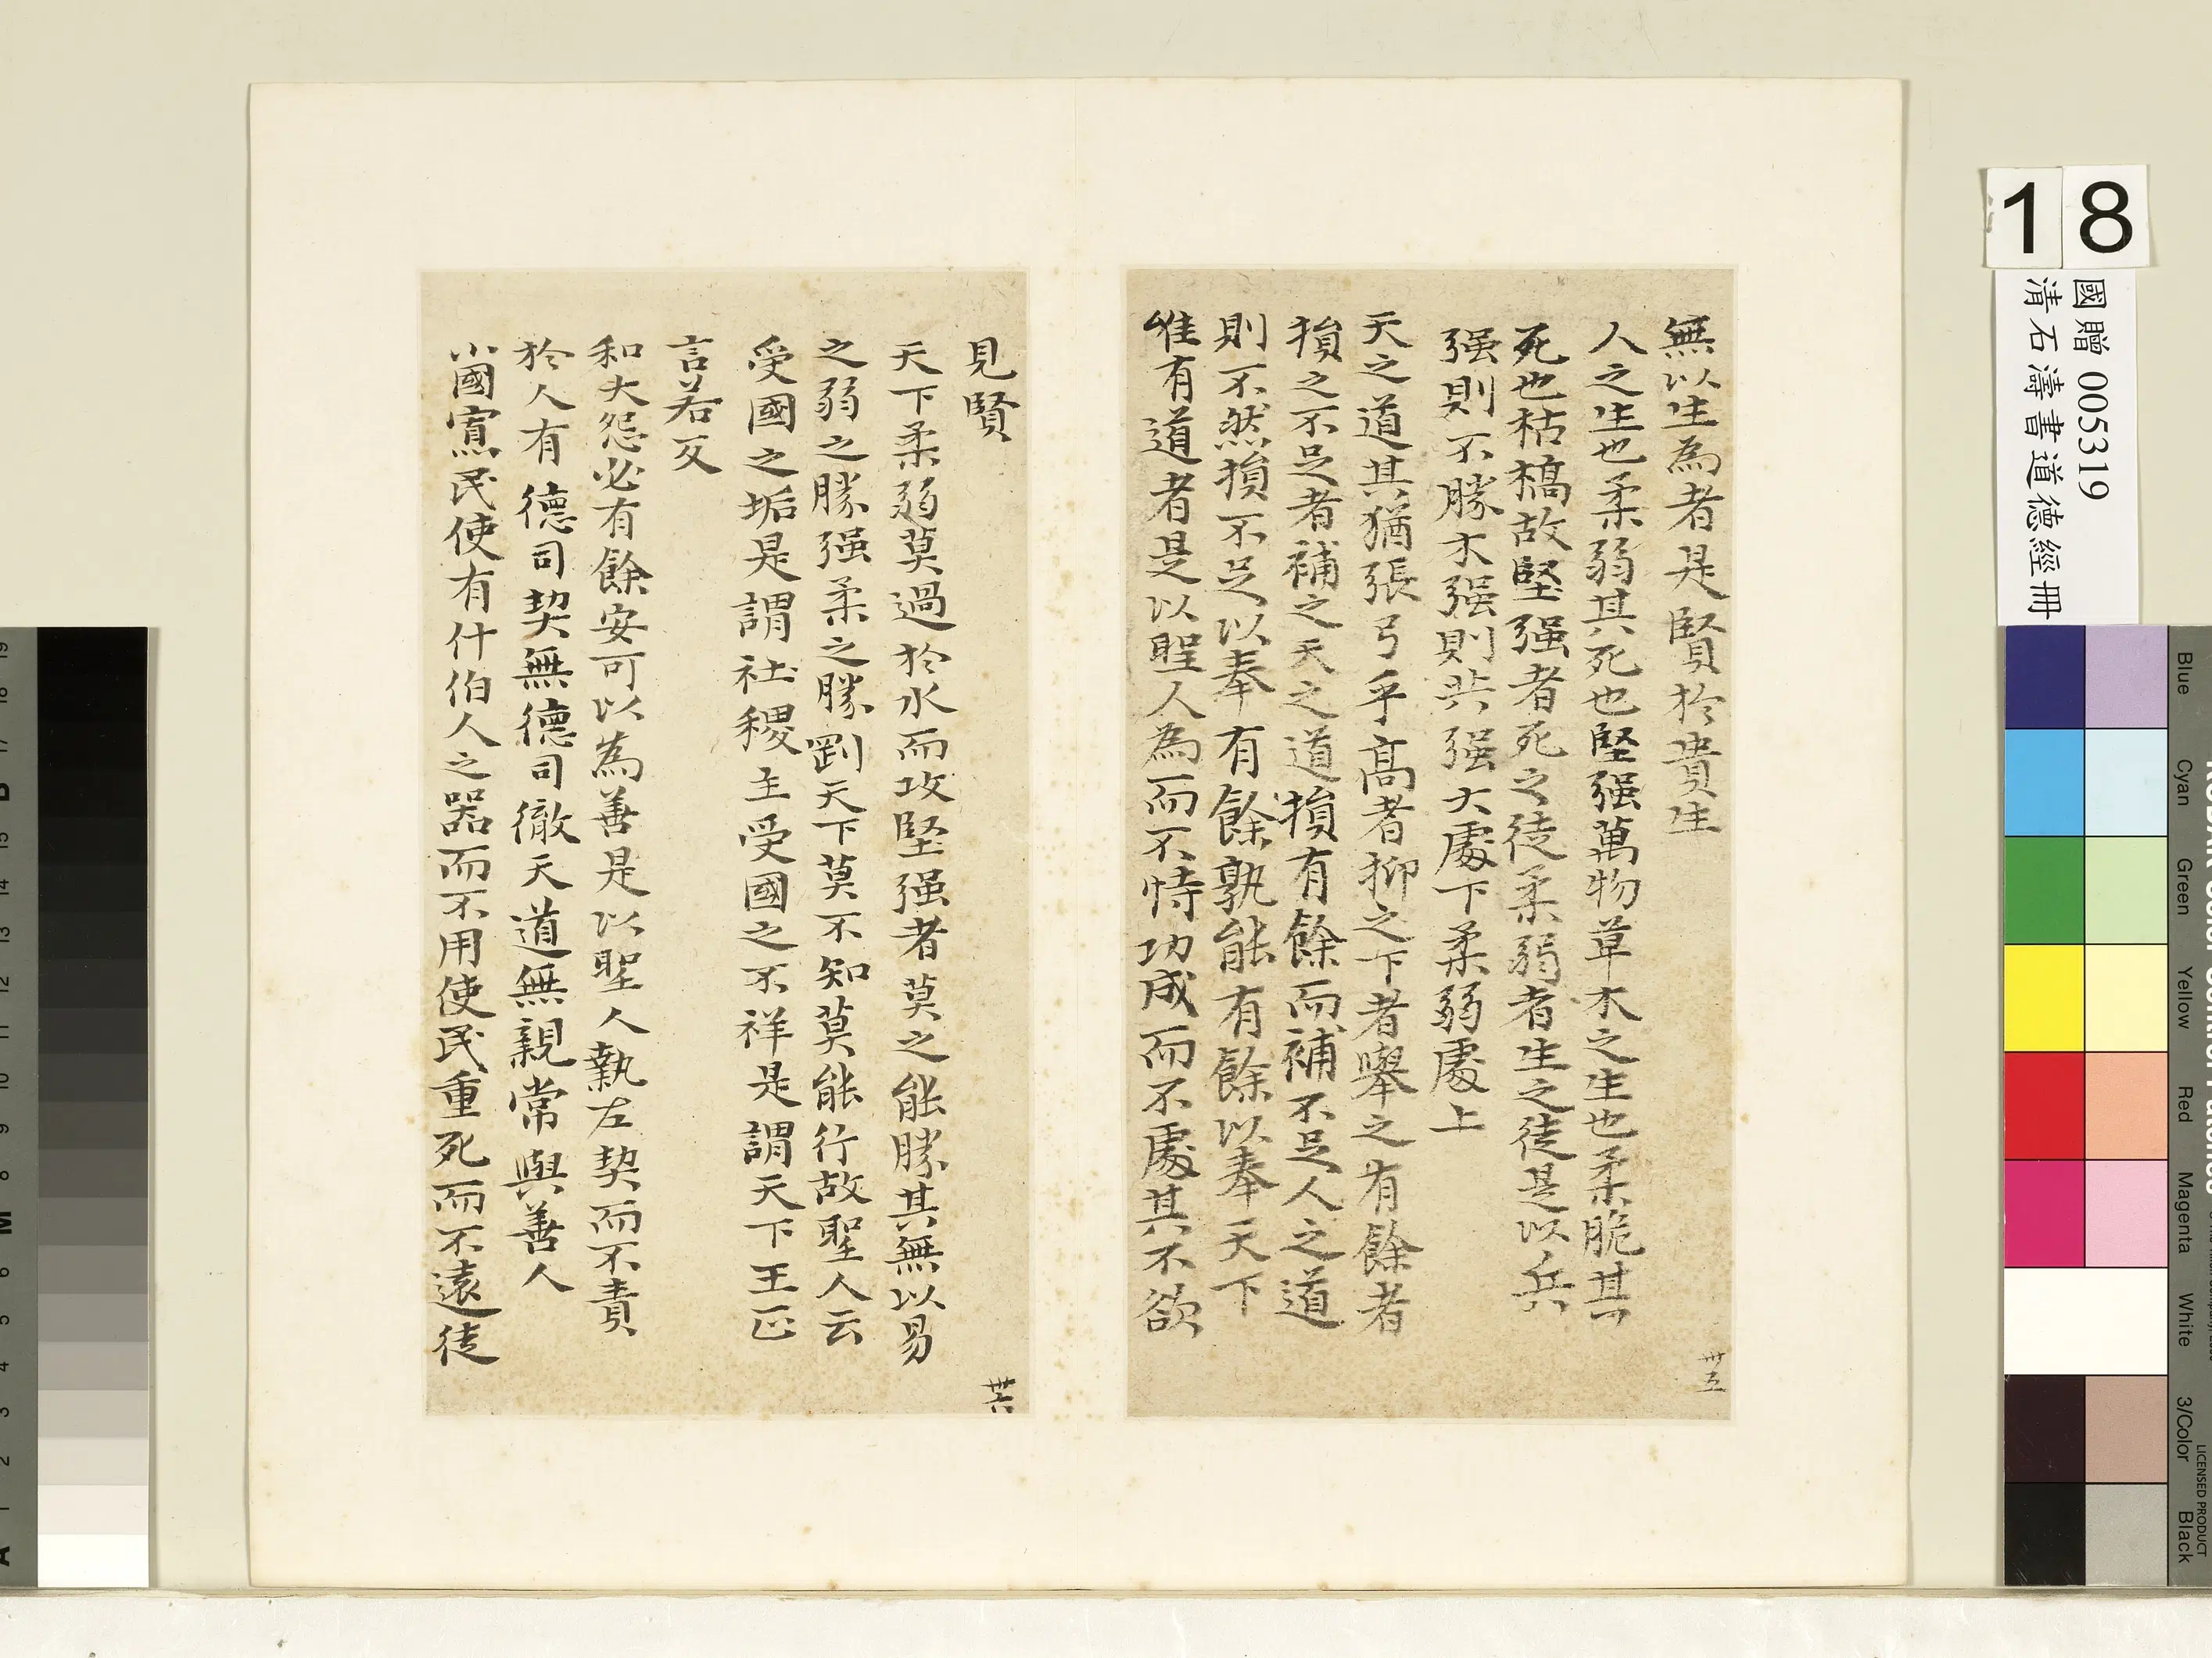 無以生為者是賢於貴生
人之生也柔弱其死也堅强萬物草木之生也柔脆其
死也枯槁故堅强者死之徒柔弱者生之徒是以兵
强則不勝木强則共强大處下柔弱處上
天之道其猶張弓乎高者抑之下者舉之有餘者
損之不足者補之天之道損有餘而補不足人之道
則不然損不足以奉有餘孰能有餘以奉天下
唯有道者是以聖人為而不恃功成而不處其不欲
卅五
見賢
天下柔弱莫過於水而攻堅强者莫之能勝其無以易
之弱之勝强柔之勝剛天下莫不知莫能行故聖人云
受國之垢是謂社稷主受國之不祥是謂天下王正
言若反
和大怨必有餘怨安可以為善是以聖人執左契而不責
於人有德司契無德司徹天道無親常與善人
小國寡民使有什伯人之器而不用使民重死而不遠徙
卅六
18
國贈 005319
清石濤書道德經冊
Blue
Cyan
Green
Yellow
Red
Magenta
White
3/Color
Black
LICENSED PRODUCT
A 1 2 3 4 5 6 M 8 9 10 11 12 13 14 15 B 17 18 19